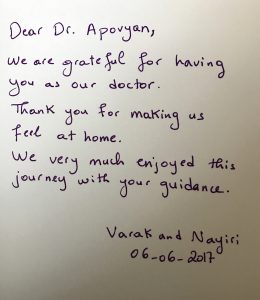 Dear Dr. Apovyan,
we are grateful for having
you as our doctor.
Thank you for making us
feel at home.
We very much enjoyed this
journey with your guidance.
Varak and Nayiri
06-06-2017